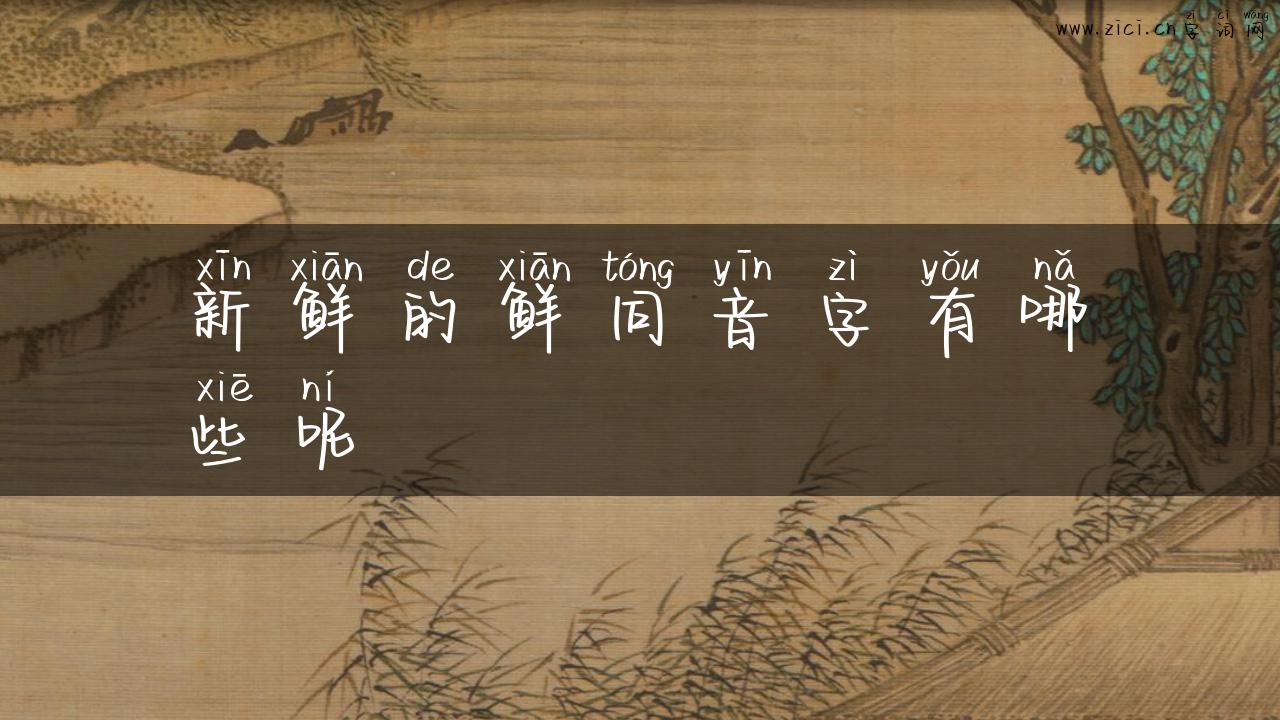 zì cí wǎng
www.zici.cn字词网
xīn xiān de xiān tóng yīn zì yǒu nǎ
新鲜的鲜同音字有哪
xiē ní
些呢